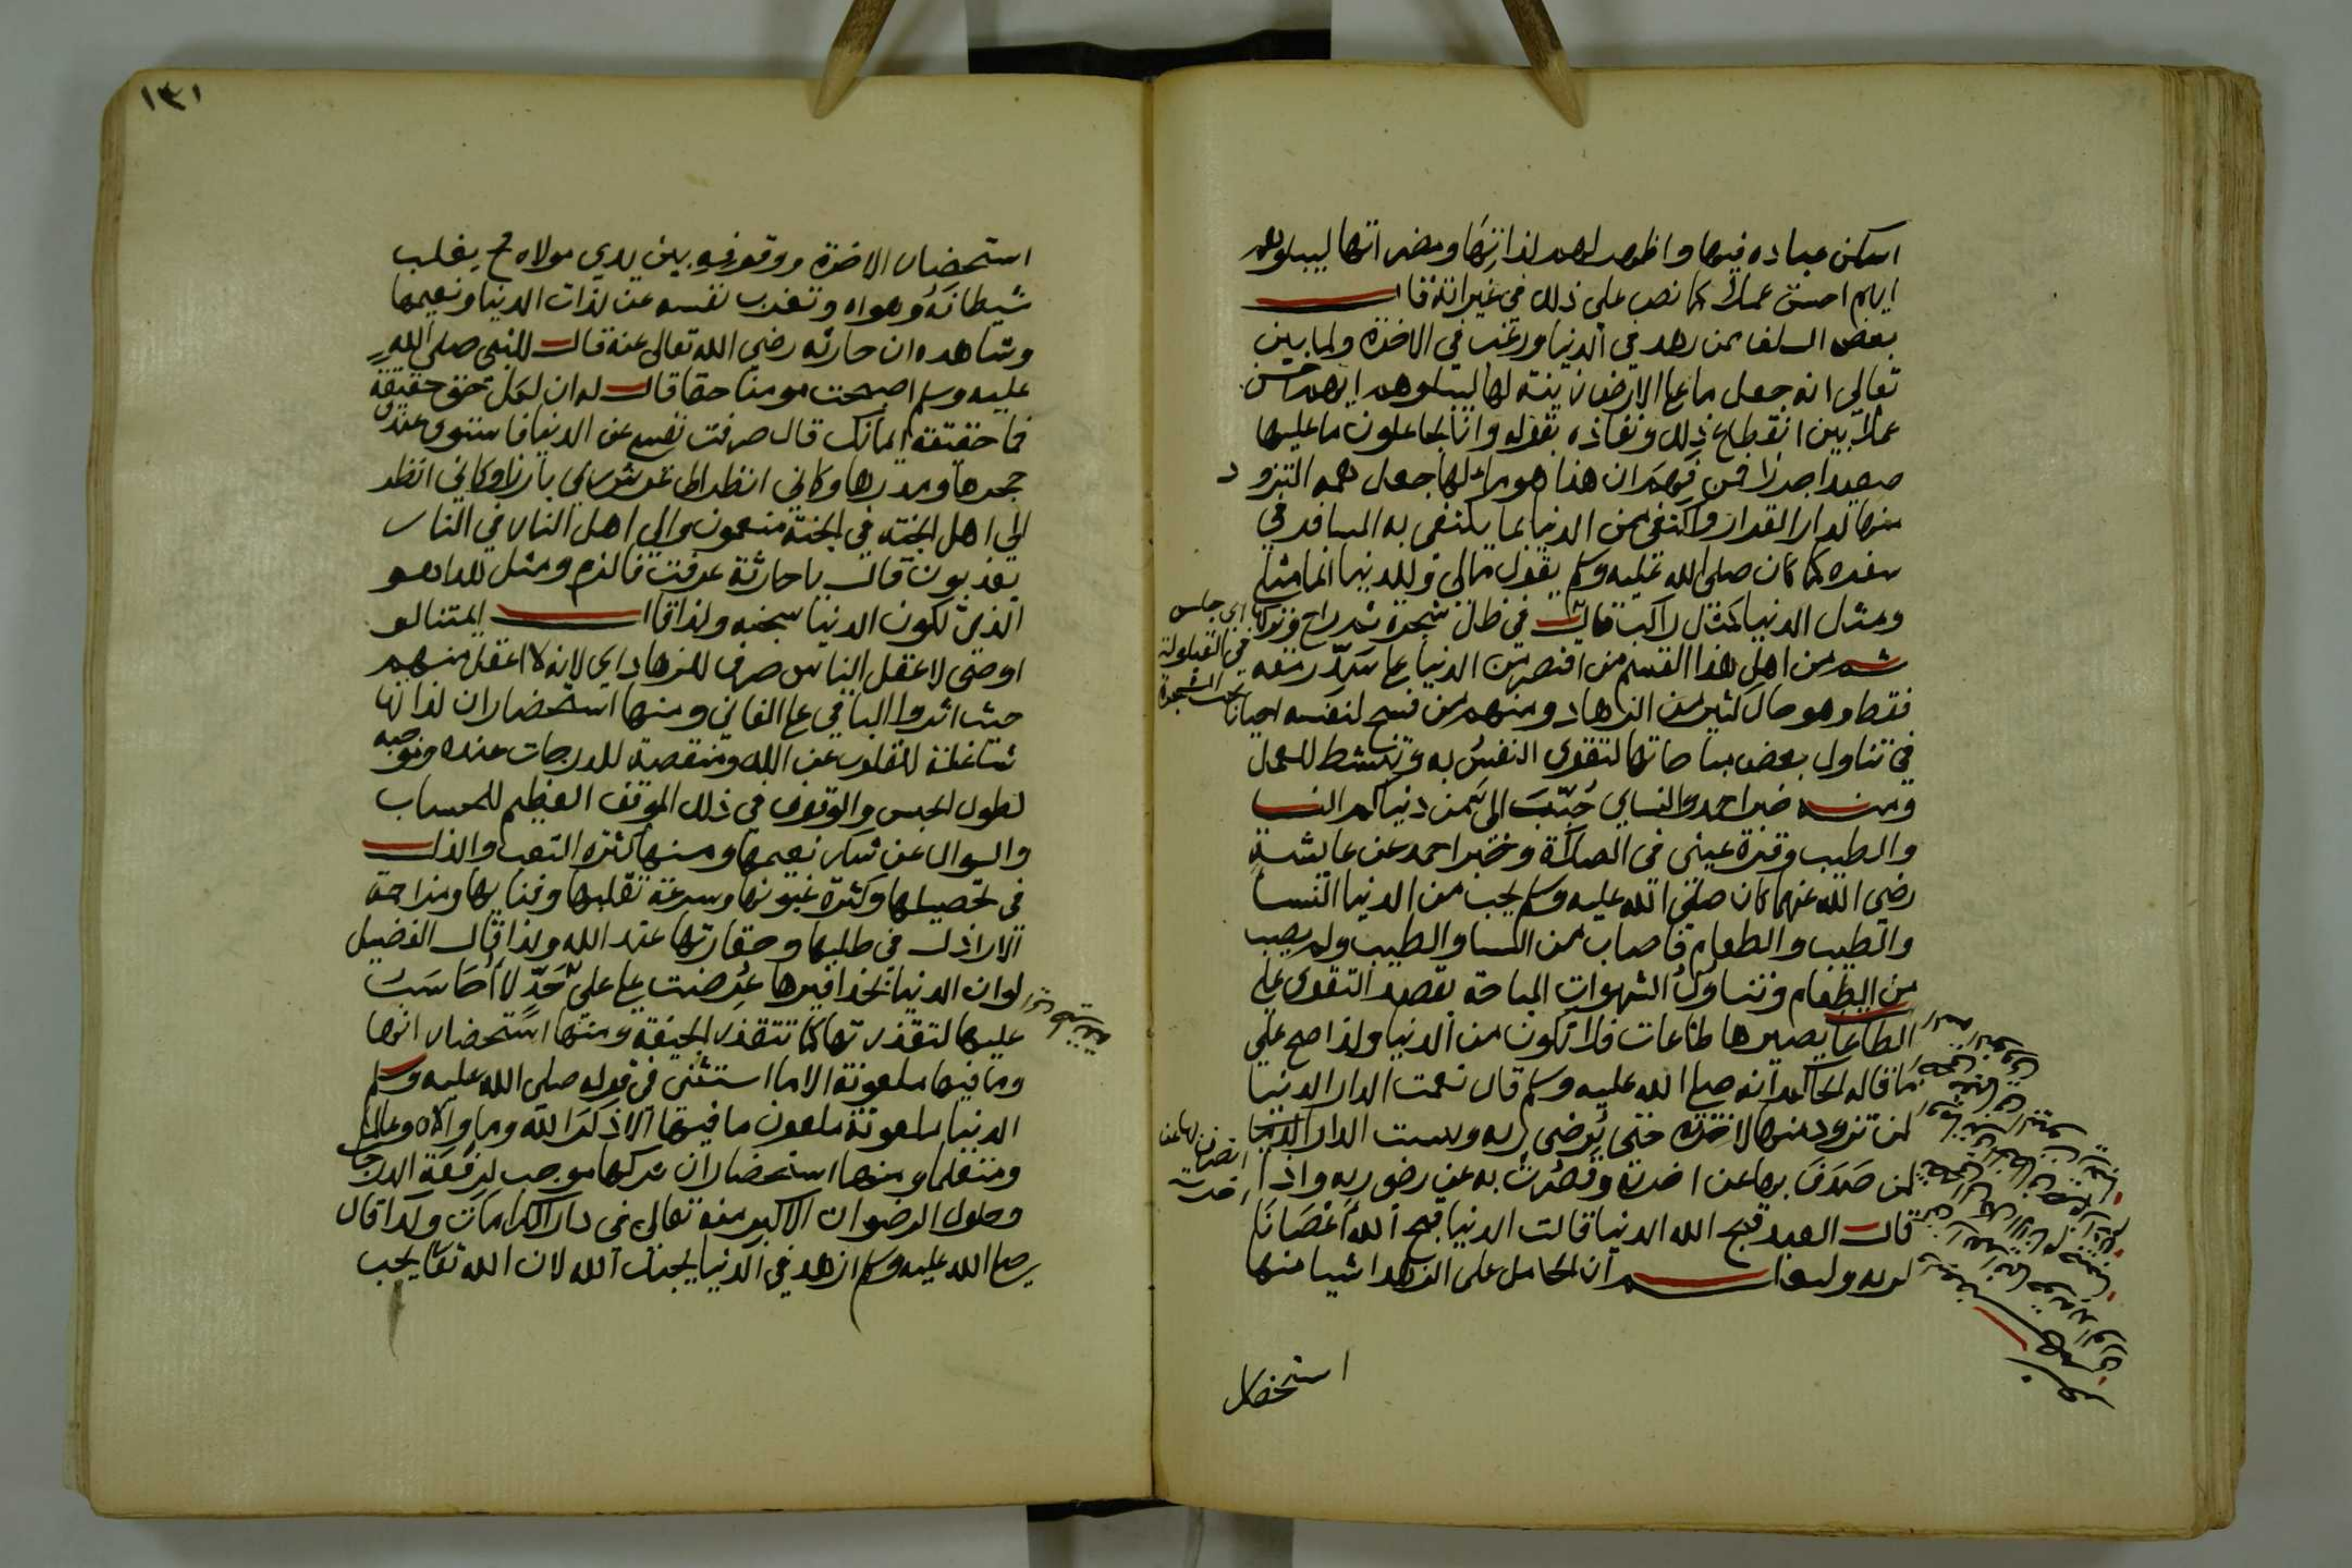 اسكن عباده فيها واظهر لهم لذاتها ومضراتها ليبلوهم
ايهم احسن عملا كما نص على ذلك في غير اية قال
بعض السلف فمن زهد في الدنيا ورغب في الاخرة ولما بين
تعالى انه جعل ما على الارض زينة لها ليبلوهم ايهم احسن
عملا بين انقطاع ذلك ونفاذه بقوله وانا لجاعلون ما عليها
صعيدا جرزا فمن فهم ان هذا هو مرادها جعل همه التزود
منها لدار القرار واكتفى من الدنيا بما يكتفى به المسافر في
سفره كما كان صلى الله عليه وسلم يقول مالي وللدنيا انما مثلي
ومثل الدنيا كمثل راكب قال في ظل شجرة ثم راح وتركها
ثم من اهل هذا القسم من اقتصر من الدنيا على سد رمقه
فقط وهو حال كثير من الزهاد ومنهم من فسح لنفسه احيانا
في تناول بعض مباحاتها لتقوى النفس به وتنشط للعمل
ومنه خبر احمد والنساي حبب الي من دنياكم النسا
والطيب وقرة عيني في الصلاة وخبر احمد عن عايشة
رضي الله عنها كان صلى الله عليه وسلم يحب من الدنيا النسا
والطيب والطعام فاصاب من النسا والطيب ولم يصب
من الطعام وتناول الشهوات المباحة بقصد التقوى على
الطاعة يصيرها طاعات فلا تكون من الدنيا ولذا صح على
ما قاله الحاكم انه صلى الله عليه وسلم قال نعمت الدار الدنيا
لمن تزود منها لاخرته حتى يرضى ربه وبيست الدار الدنيا
لمن صدت بها عن اخرته وقصرت به عن رضى ربه واذا
قال العبد قبح الله الدنيا قالت الدنيا قبح الله اعصانا
لربه واعلم ان الحامل على الزهد اشيا منها
اي جلس
في القيلولة
تحت الشجرة
استحضار
١٣١
استحضار الاخرة ووقوفه بين يدي مولاه ح يغلب
شيطانه وهواه وتعزب نفسه عن لذات الدنيا ونعيمها
وشاهده ان حارثه رضي الله تعالى عنه قال للنبي صلى الله
عليه وسلم اصبحت مومنا حقا قال له ان لكل حق حقيقة
فما حقيقة ايمانك قال صرفت نفسي عن الدنيا فاستوى عندي
حجرها ومدرها وكاني انظر الى عرش ربي بارزا وكاني انظر
الى اهل الجنة في الجنة منعمون والى اهل النار في النار
يعذبون قال يا حارثة عرفت فالزم ومثل للداهو
الذي لكون الدنيا سجنه ولذا قال ائمتنا لو
اوصى لاعقل الناس صرف للزهاد اي لانه لا اعقل منهم
حيث اثروا الباقي على الفاني ومنها استحضار ان لذاتها
شاغلة للقلوب عن الله ومنقصة للدرجات عنده وموجبه
لطول الحبس والوقوف في ذلك الموقف العظيم للحساب
والسوال عن شكر نعيمها ومنها كثرة التعب والذل
في تحصيلها وكثرة غبونها وسرعة تقلبها وفنايها ومزاحمة
الاراذل في طلبها وحقارتها عند الله ولذا قال الفضيل
لو ان الدنيا بحذافيرها عرضت علي على حد لا احاسب
عليها لتقذرتها كما تتقذر الجيفة ومنها استحضار انها
وما فيها ملعونة الا ما استثنى في قوله صلى الله عليه وسلم
الدنيا ملعونة ملعون ما فيها الا ذكر الله وما والاه وعالما
ومتعلما ومنها استحضار ان تركها موجب لرفعة الدرجات
وحلول الرضوان الاكبر منه تعالى في دار الكرامات ولذا قال
صلى الله عليه وسلم ازهد في الدنيا يحبك الله لان الله تعالى يحب